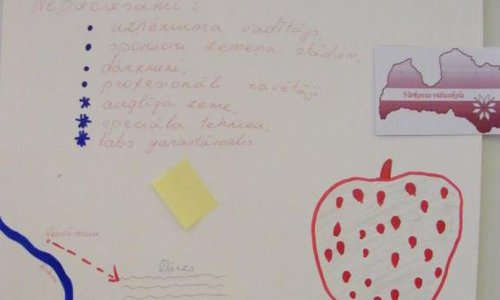 Nepieciešami:
• uzņēmuma vadītājs,
• sponsori zemeņu stādiem,
• dārznieki,
• profesionāli ravētāji
* auglīga zeme,
* speciāla tehnika,
* labs garastāvoklis
Vārkavas vidusskola
Dārzs